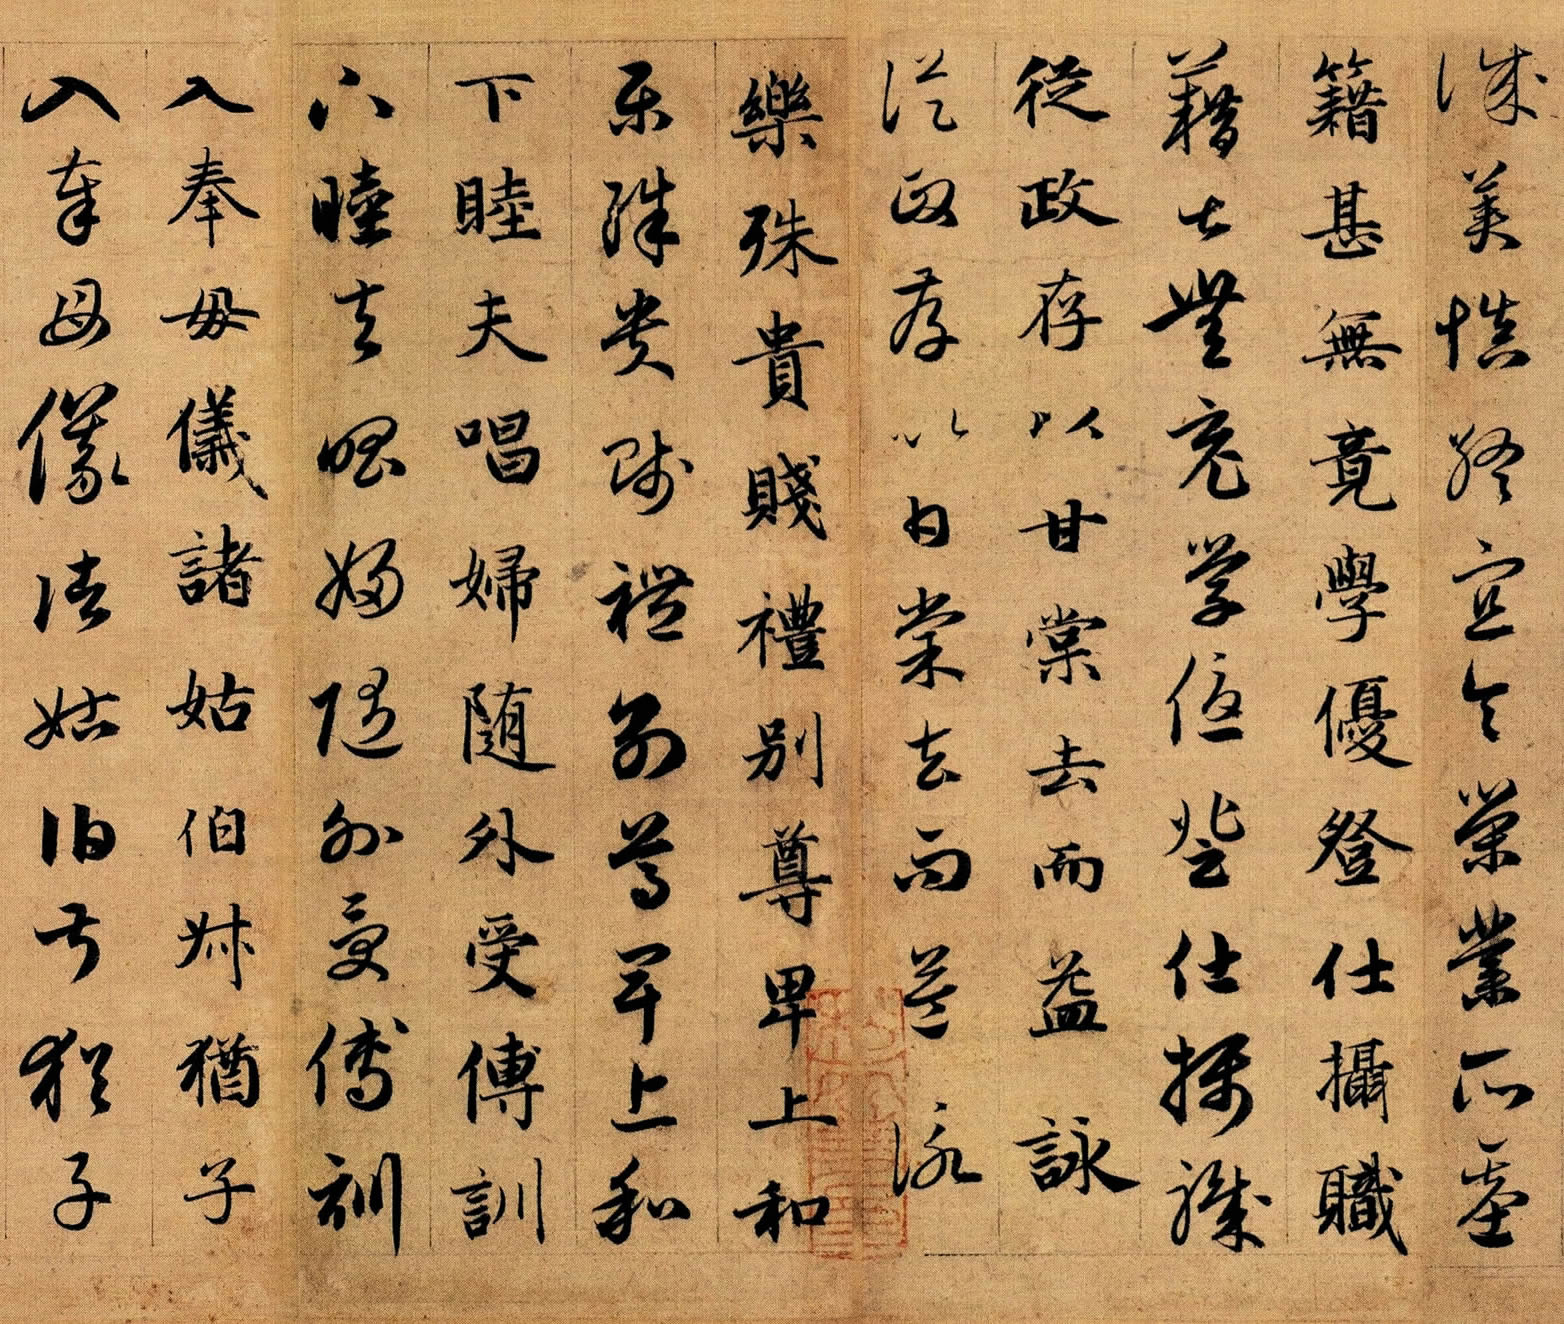 誠美慎終宜令榮業所基
籍甚無竟學優登仕攝職
籍甚無竟學優登仕攝職
從政存以甘棠去而益詠
從政存以甘棠去而益詠
樂殊貴賤禮別尊卑上和
樂殊貴賤禮別尊卑上和
下睦夫唱婦随外受傅訓
下睦夫唱婦随外受傅訓
入奉母儀諸姑伯叔猶子
入奉母儀諸姑伯叔猶子